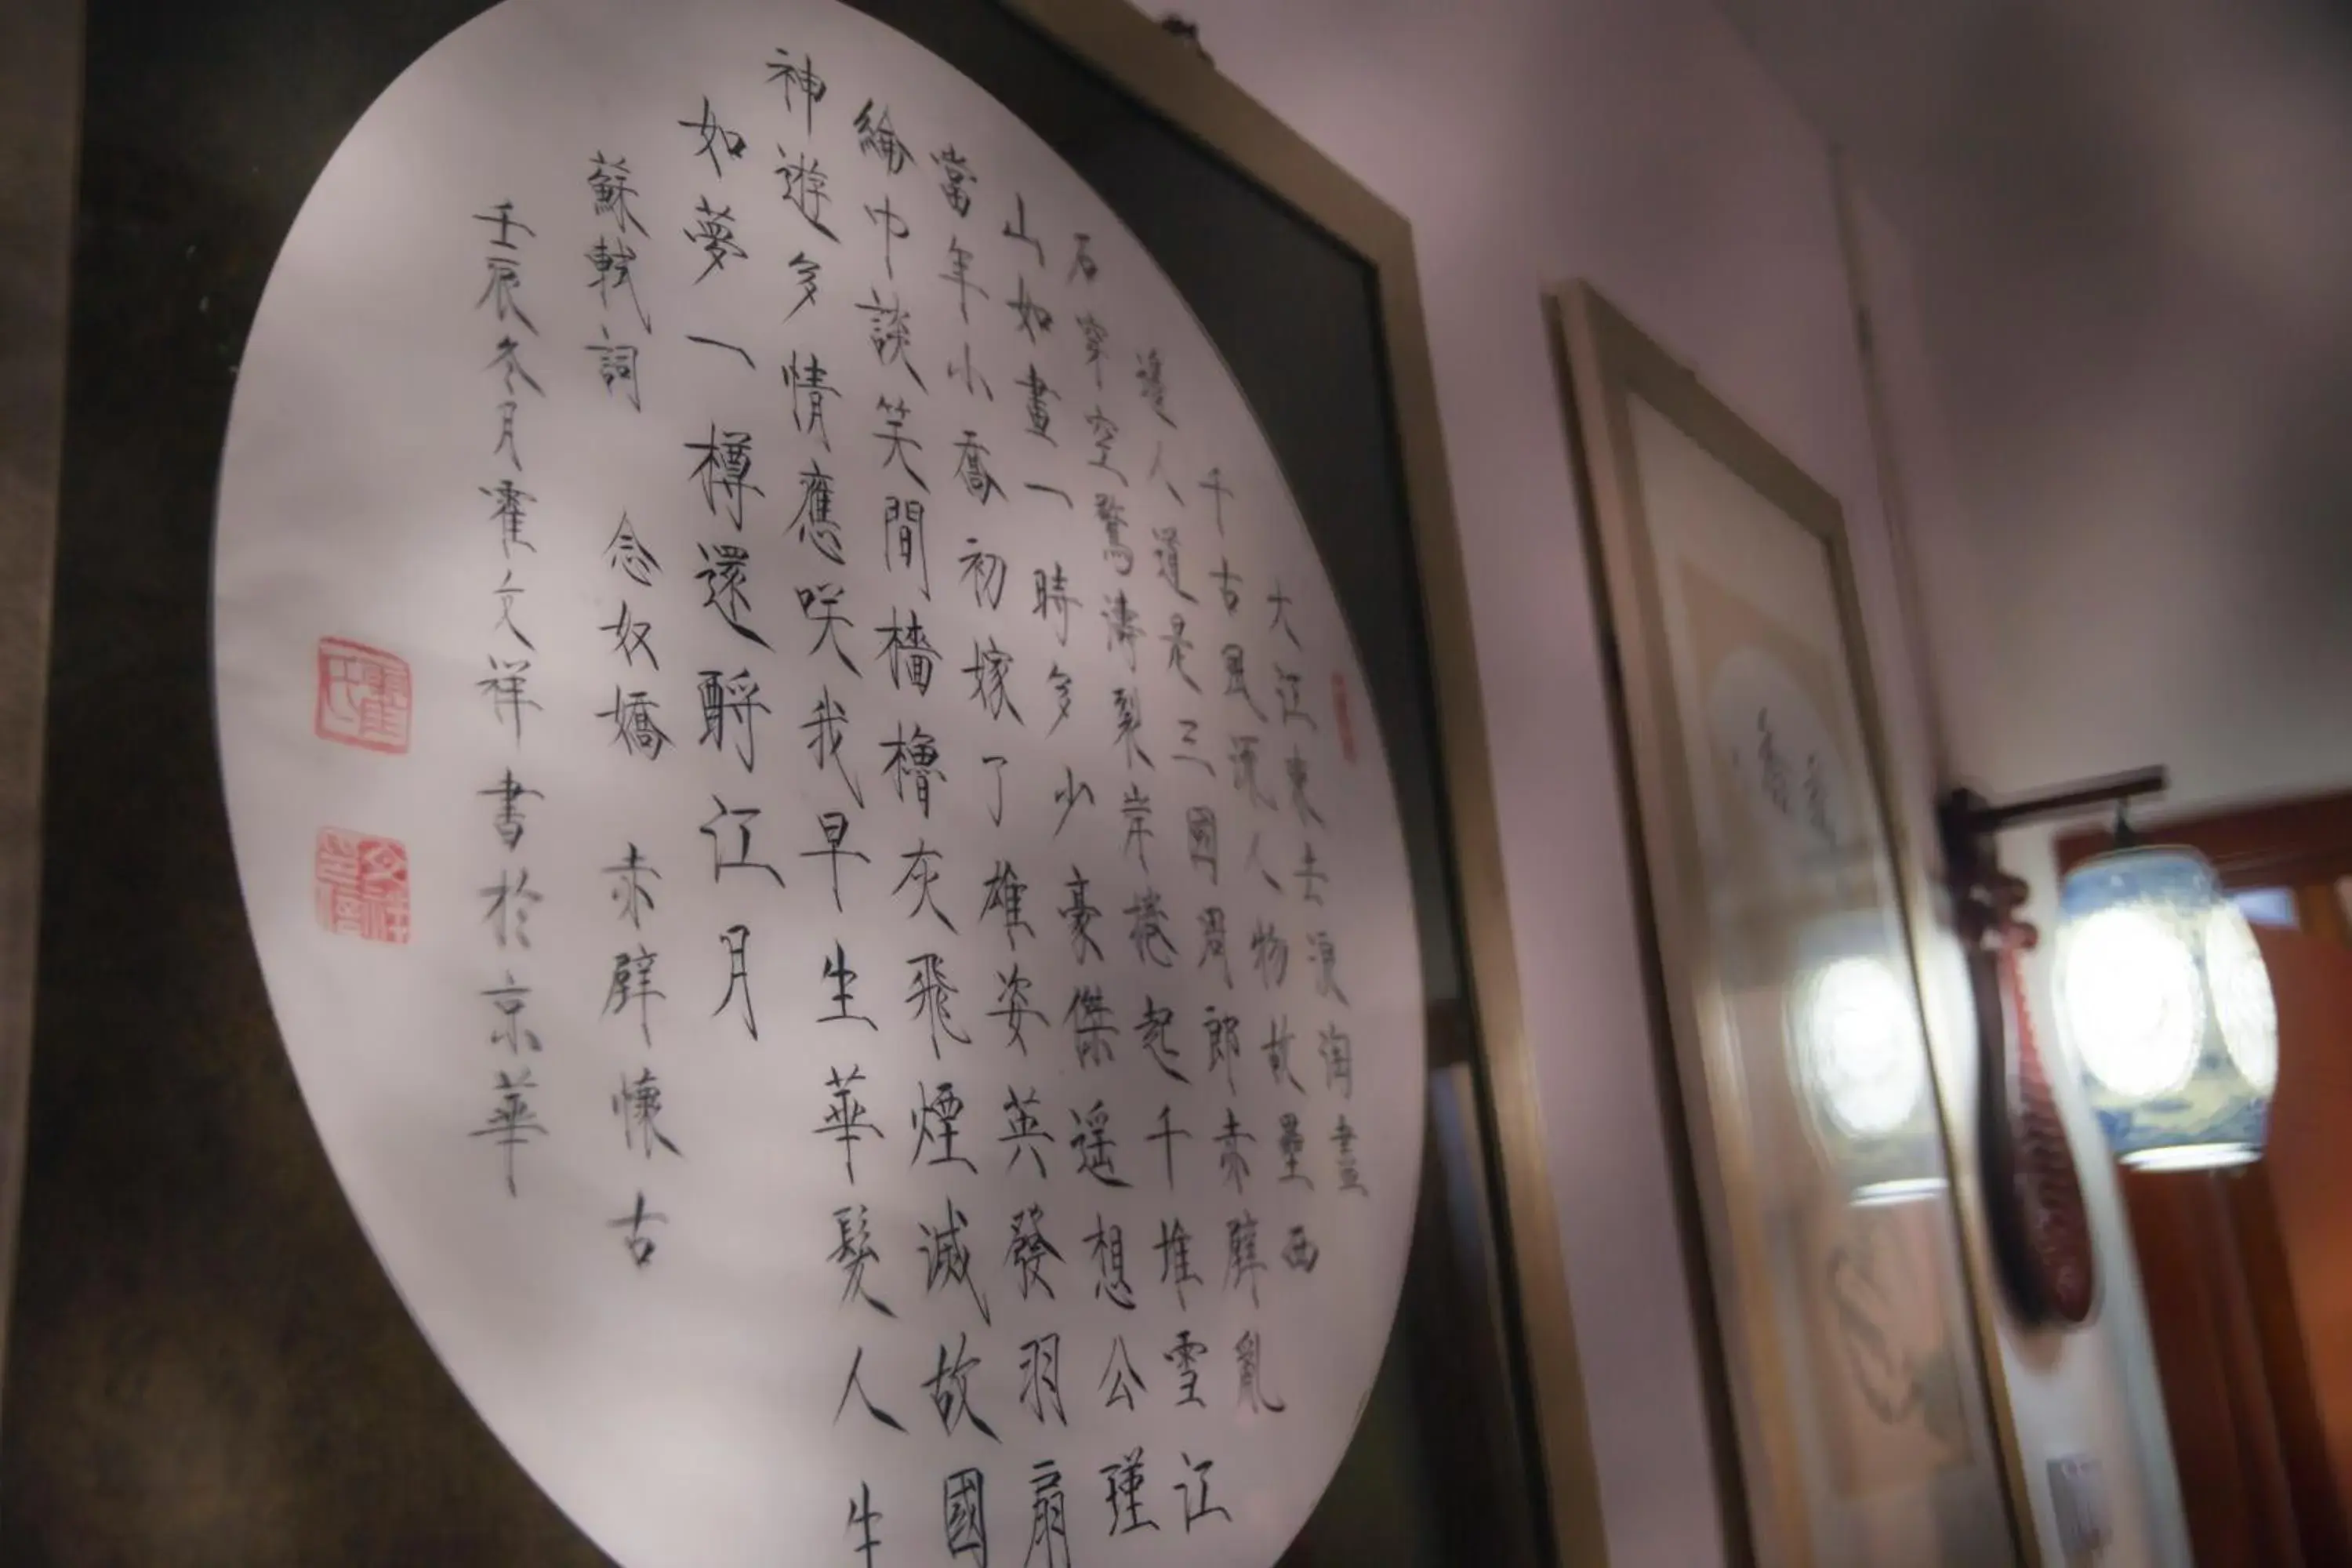 大江東去浪淘盡
千古風流人物故壘西
邊人道是三國周郎赤壁亂
石穿空驚濤裂岸捲起千堆雪江
山如畫一時多少豪傑遥想公瑾
當年小喬初嫁了雄姿英發羽扇
綸巾談笑間檣櫓灰飛煙滅故國
神遊多情應咲我早生華髮人生
如夢一樽還酹江月
蘇軾詞 念奴嬌 赤壁懷古
壬辰冬月霍文祥書於京華